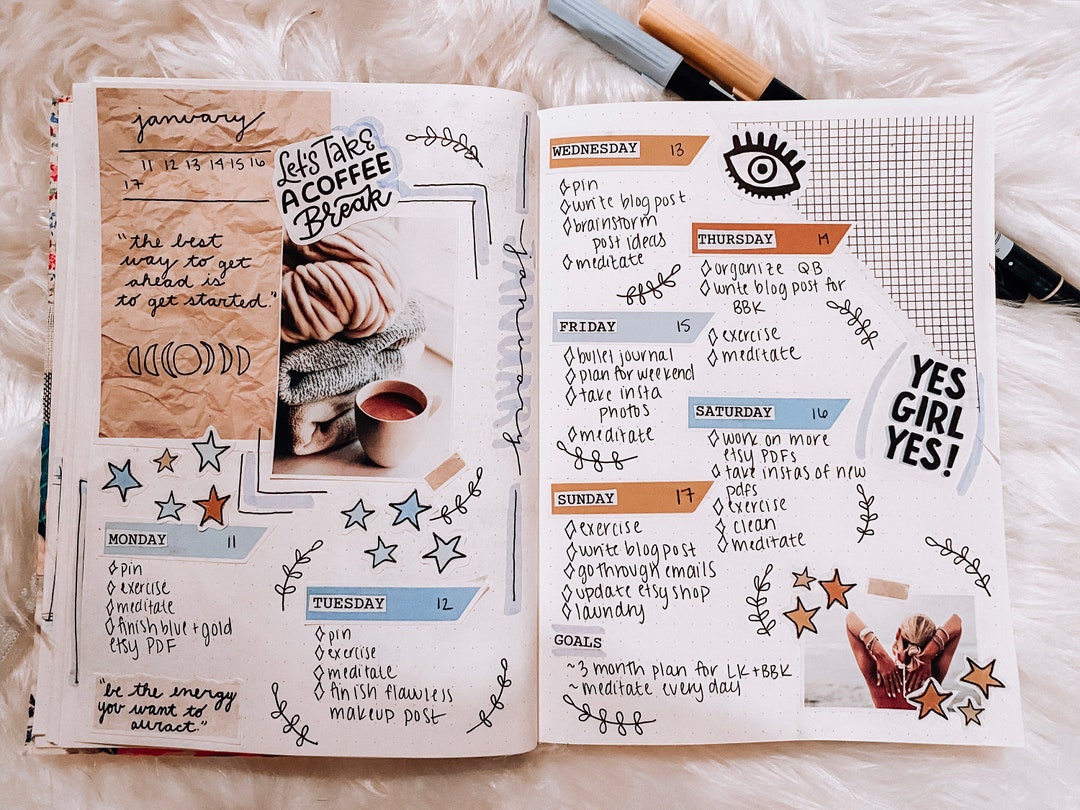 january
11 12 13 14 15 16
17
"the best
way to get
ahead is
to get started."
Let's Take
A COFFEE
Break
january
MONDAY 11
pin
exercise
meditate
finish blue + gold
etsy PDF
"be the energy
you want to
attract."
TUESDAY 12
pin
exercise
meditate
finish flawless
makeup post
WEDNESDAY 13
pin
write blog post
brainstorm
post ideas
meditate
THURSDAY 14
organize QB
write blog post for
BBK
exercise
meditate
FRIDAY 15
bullet journal
plan for weekend
take insta
photos
meditate
SATURDAY 16
work on more
etsy PDFs
take instas of new
pdfs
exercise
clean
meditate
SUNDAY 17
exercise
write blog post
go through emails
update etsy shop
laundry
GOALS
~ 3 month plan for LK + BBK
~ meditate every day
YES
GIRL
YES!